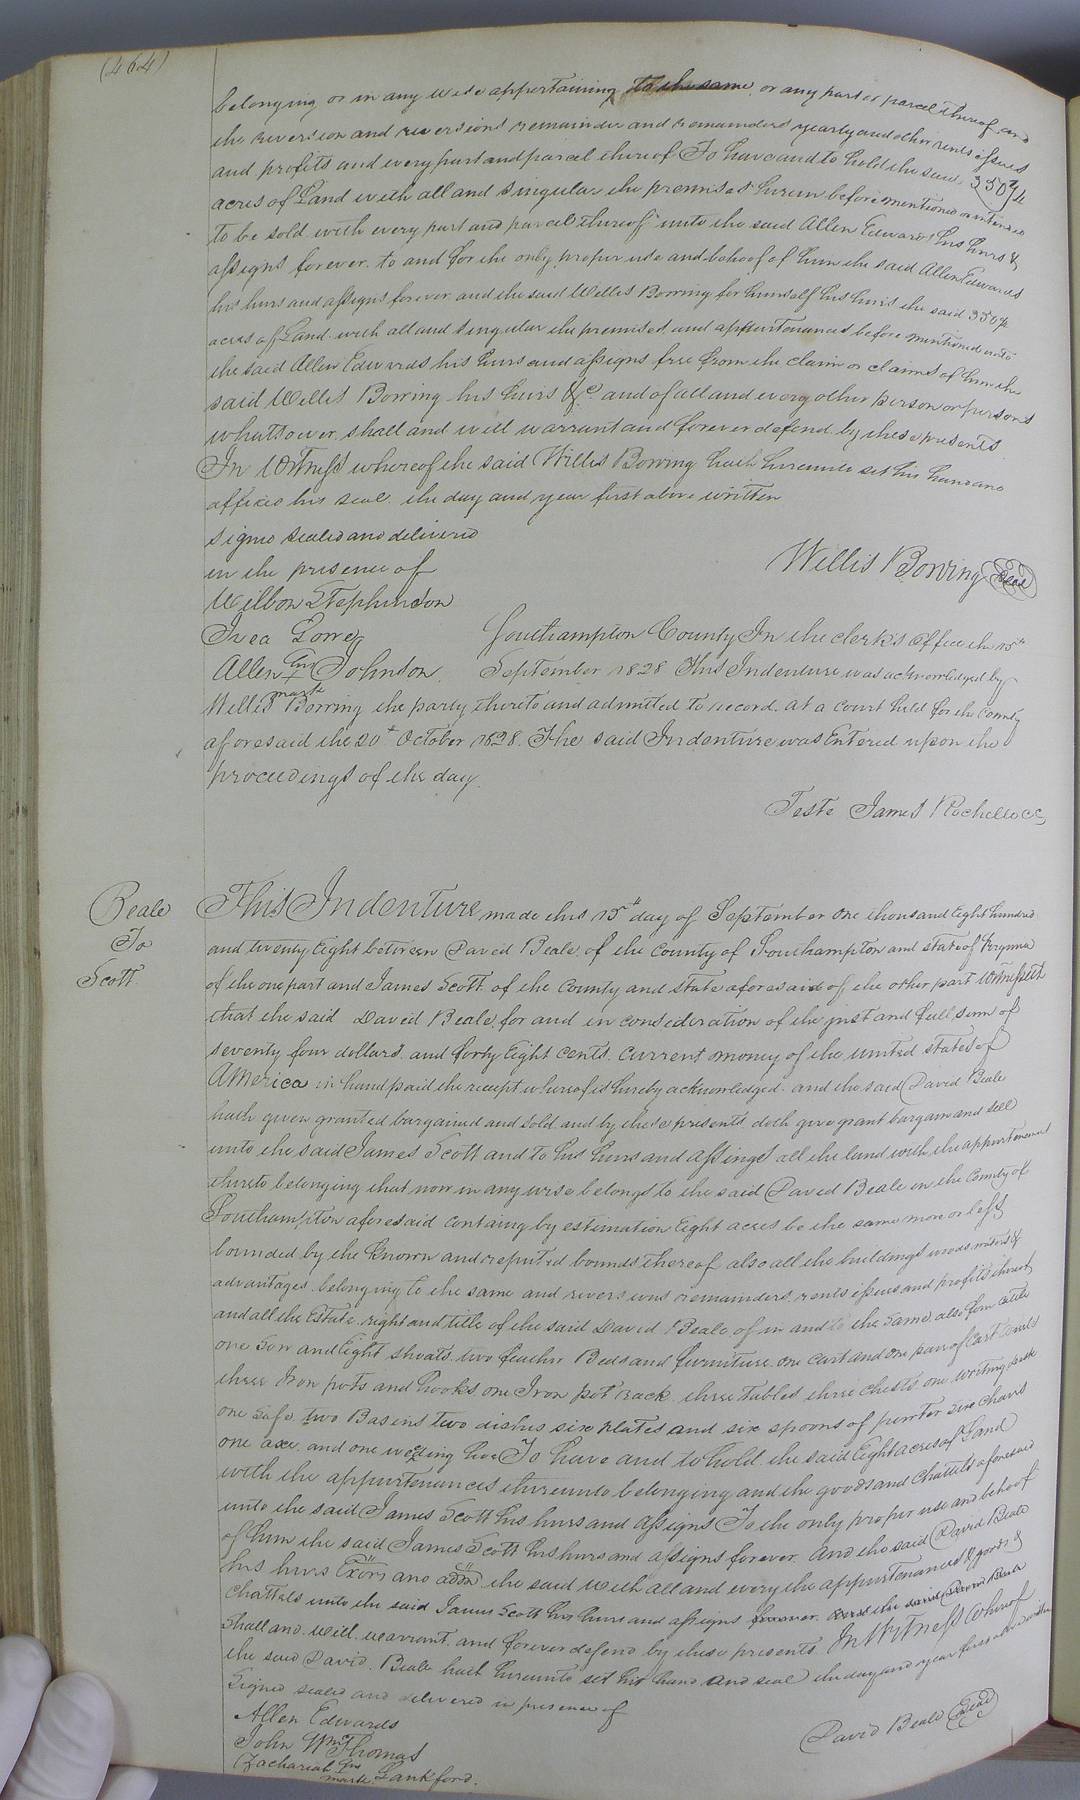 (464)
belonging or in any wise appertaining to the same, or any part or parcel thereof and
the reversion and reversions remainder and remainders yearly and other rents issues
and profits and every part and parcel thereof To have and to hold the said 350¾
acres of Land with all and singular the premises herein before mentioned or intended
to be sold with every part and parcel thereof unto the said Allen Edwards his heirs &
assigns forever. to and for the only proper use and behoof of him the said Allen Edwards
his heirs and assigns forever and the said Willis Bowing for himself his heirs the said 350¾
acres of Land with all and singular the premises and appurtenances before mentioned unto
the said Allen Edwards his heirs and assigns free from the claim or claims of him the
said Willis Bowing his heirs &c and of all and every other person or persons
whatsoever shall and will warrant and forever defend by these presents
In Witness whereof the said Willis Bowing hath hereunto set his hand and
affixed his seal the day and year first above written
Signed sealed and delivered
in the presence of
Willis Bowing Seal
Wilbon Stephenson
Ivea Lowe
Southampton County In the clerk's office the 15th
Allen his + mark Johnson
September 1828 This Indenture was acknowledged by
Willis Bowing the party thereto and admitted to record. at a court held for the county
aforesaid the 20th October 1828. The said Indenture was Entered upon the
proceedings of the day.
Teste James Rochelle CC
Beale
To
Scott
This Indenture made this 15th day of September one thousand Eight hundred
and twenty Eight between David Beale of the county of Southampton and state of Virginia
of the one part and James Scott of the county and state aforesaid of the other part Witnesseth
that the said David Beale, for and in consideration of the just and full sum of
seventy four dollars, and forty Eight cents. current money of the united states of
America in hand paid the receipt whereof is hereby acknowledged. and the said David Beale
hath given granted bargained and sold and by these presents doth give grant bargain and sell
unto the said James Scott and to his heirs and assings all the land with the appurtenances
thereto belonging that now in any wise belongs to the said David Beale in the county of
Southampton aforesaid containg by estimation Eight acres be the same more or less &
bounded by the known and reputed bounds thereof also all the buildings woods waters &
advantages belonging to the same and reversions remainders rents issues and profits thereof
and all the Estate right and title of the said David Beale of in and to the same, also four cattle
one Sow and Eight shoats. two feather Beds and furniture one cart and one pair of Cart wheels
three Iron pots and hooks one Iron pot rack three tables three chests one writing desk
one safe two Basins two dishes six plates and six spoons of pewter six chairs
one axe and one weeding hoe To have and to hold the said Eight acres of Land
with the appurtenances thereunto belonging and the goods and chattels aforesaid
unto the said James Scott his heirs and assigns To the only proper use and behoof
of him the said James Scott his heirs and assigns forever. And the said David Beale
his heirs Exors and adms the said with all and every the appurtenances & goods &
chattels unto the said James Scott his heirs and assigns forever. And the said David Beale
shall and will warrant and forever defend by these presents In Witness whereof
the said David Beale hath hereunto set his hand and seal the day and year first above written
Signed sealed and delivered in presence of
David Beale Seal
Allen Edwards
John Wm Thomas
Zachariah his mark Lankford.